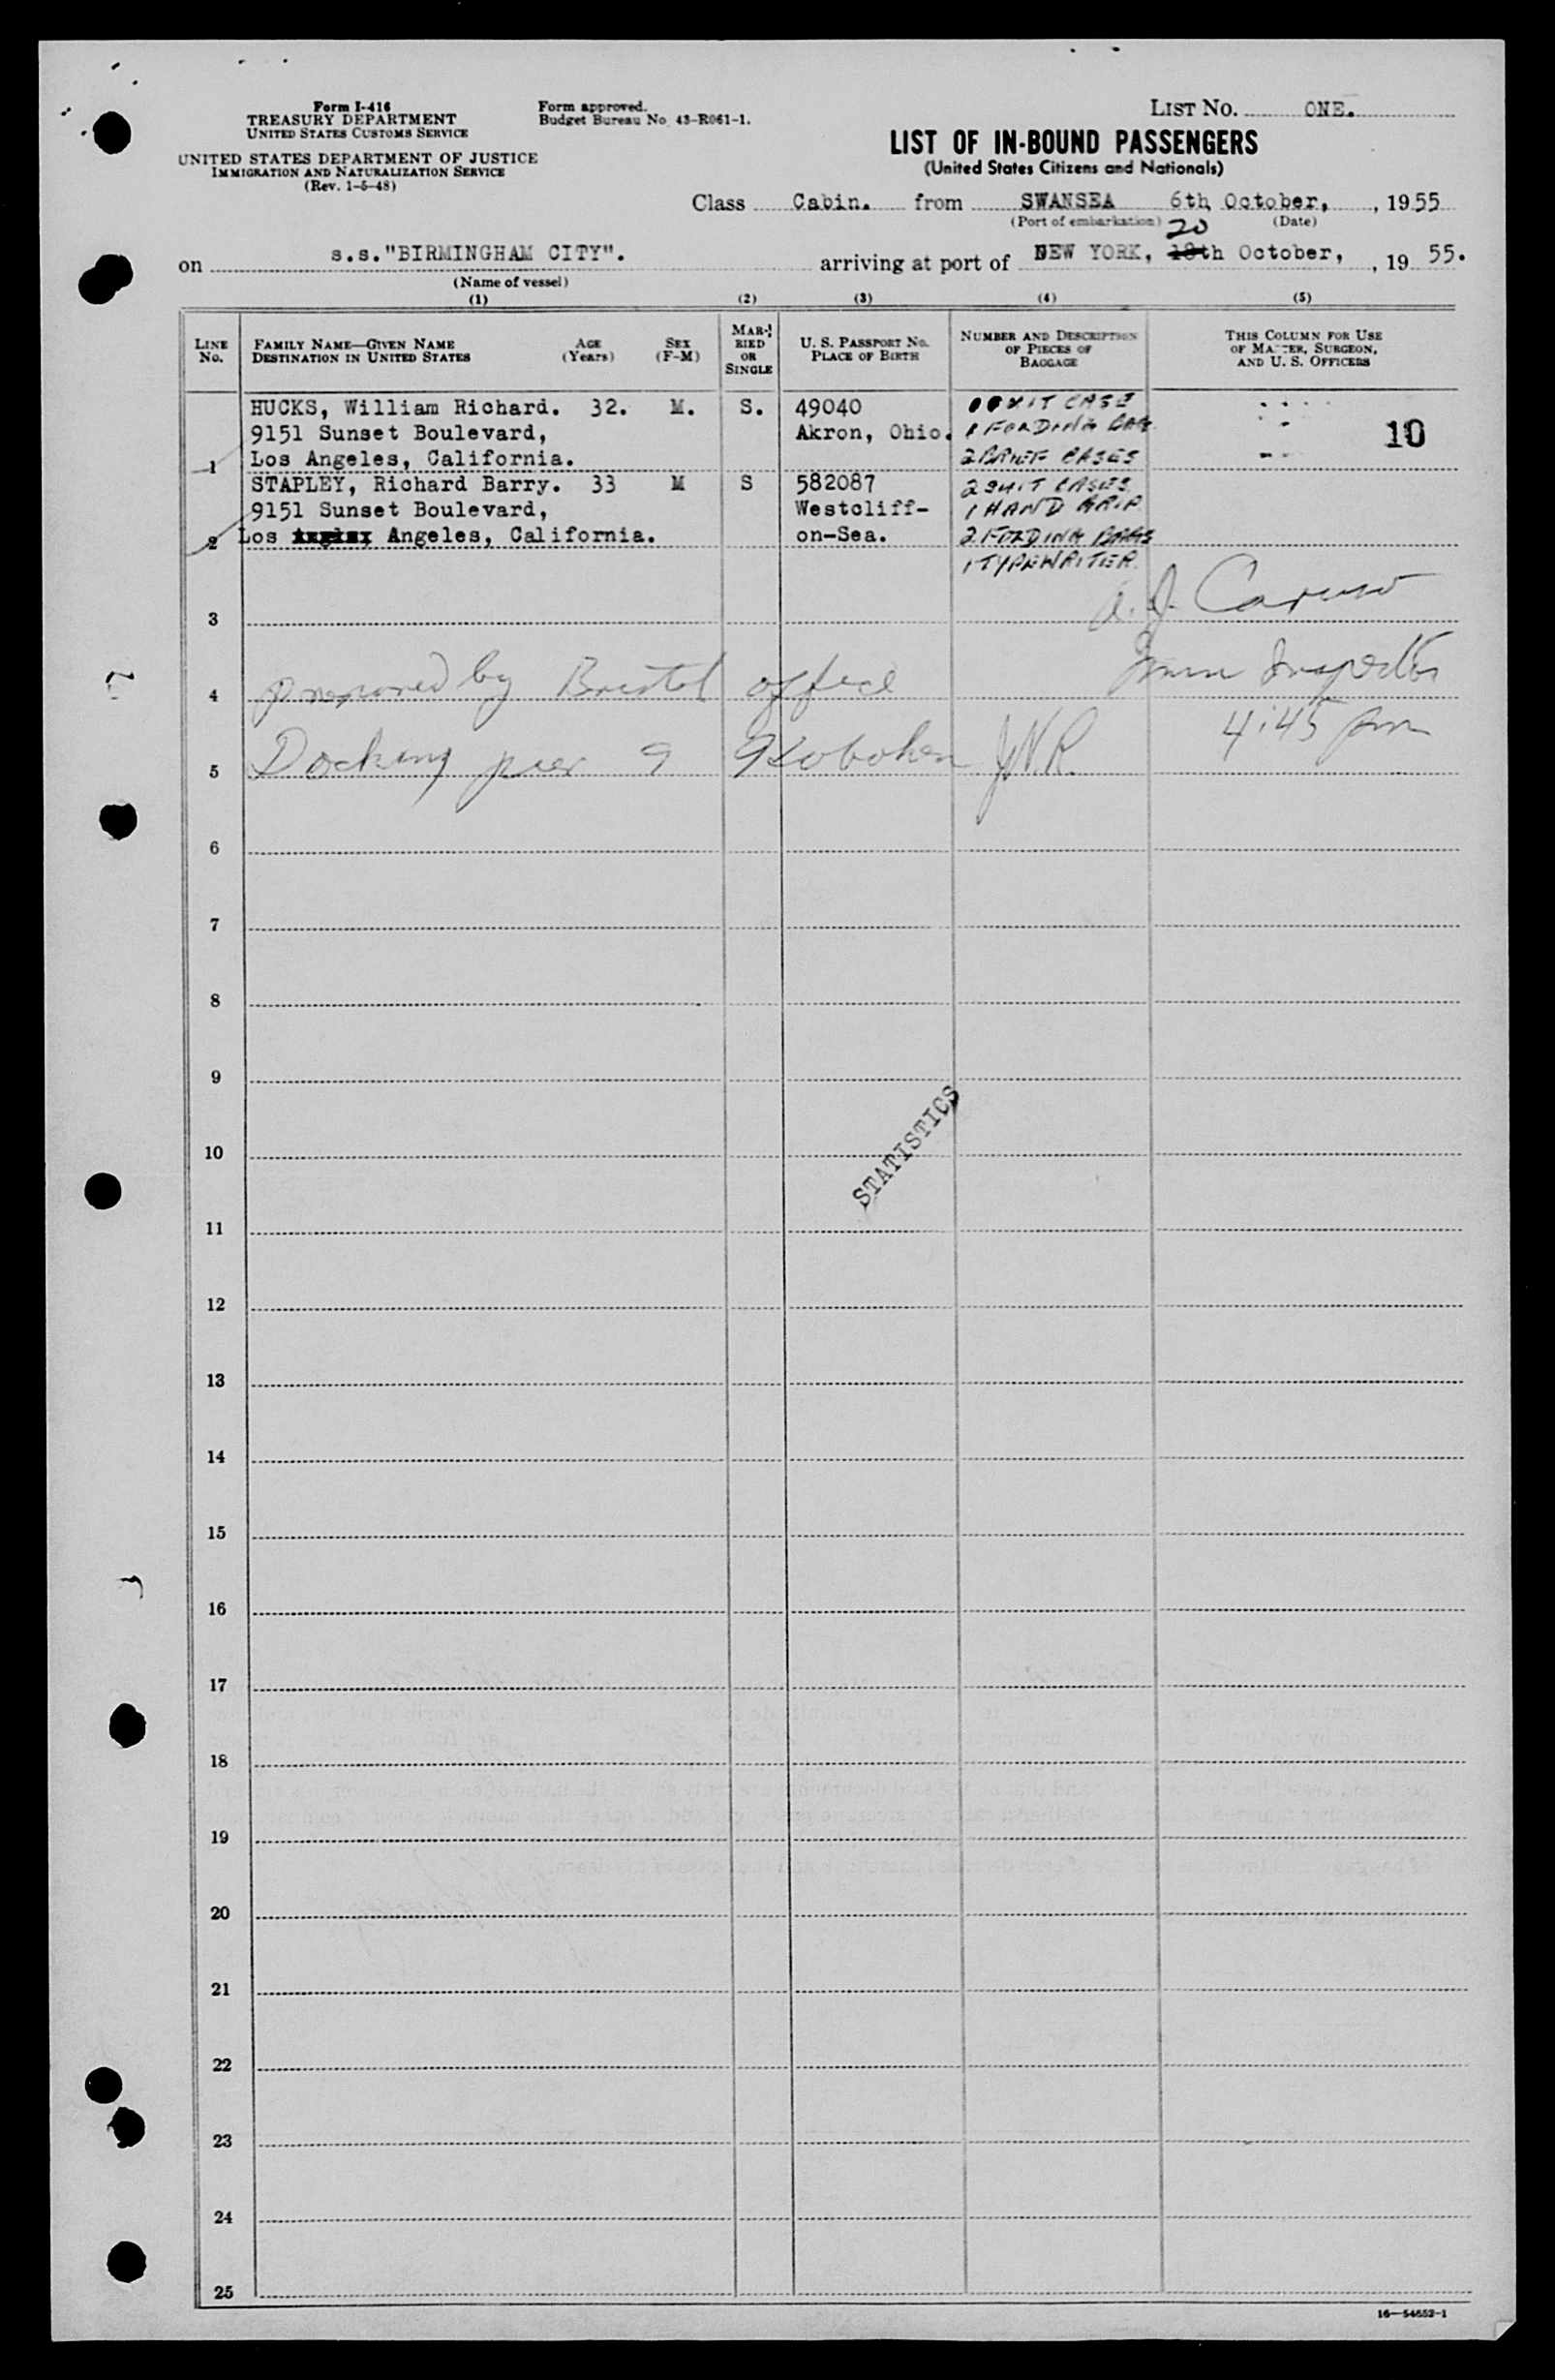 Form I-416
TREASURY DEPARTMENT
UNITED STATES CUSTOMS SERVICE
UNITED STATES DEPARTMENT OF JUSTICE
IMMIGRATION AND NATURALIZATION SERVICE
(Rev. 1-5-48)
Form approved.
Budget Bureau No. 43-R061-1.
LIST No. ONE.
LIST OF IN-BOUND PASSENGERS
(United States Citizens and Nationals)
Class Cabin. from SWANSEA 6th October, , 1955
(Port of embarkation) (Date)
20
on s.s."BIRMINGHAM CITY". arriving at port of NEW YORK, 18th October, , 19 55.
(Name of vessel)
(1) (2) (3) (4) (5)
LINE No. FAMILY NAME—GIVEN NAME DESTINATION IN UNITED STATES AGE (Years) SEX (F-M) MARRIED OR SINGLE U. S. PASSPORT No. PLACE OF BIRTH NUMBER AND DESCRIPTION OF PIECES OF BAGGAGE THIS COLUMN FOR USE OF MASTER, SURGEON, AND U. S. OFFICERS
HUCKS, William Richard. 32. M. S. 49040 SUIT CASE
9151 Sunset Boulevard, Akron, Ohio. 1 FOLDING BAG 10
1 Los Angeles, California. 2 BRIEF CASES
STAPLEY, Richard Barry. 33 M S 582087 2 SUIT CASES
9151 Sunset Boulevard, Westcliff- 1 HAND GRIP
2 Los Angeles, California. on-Sea. 2 FOLDING BAGS
1 TYPEWRITER.
3 A. J. Caruso
4 prepared by Bristol office Imm Inspector
5 Docking pier 9 Hoboken J.V.R. 4:45 pm
6
7
8
9
10
STATISTICS
11
12
13
14
15
16
17
18
19
20
21
22
23
24
25
16—54652-1